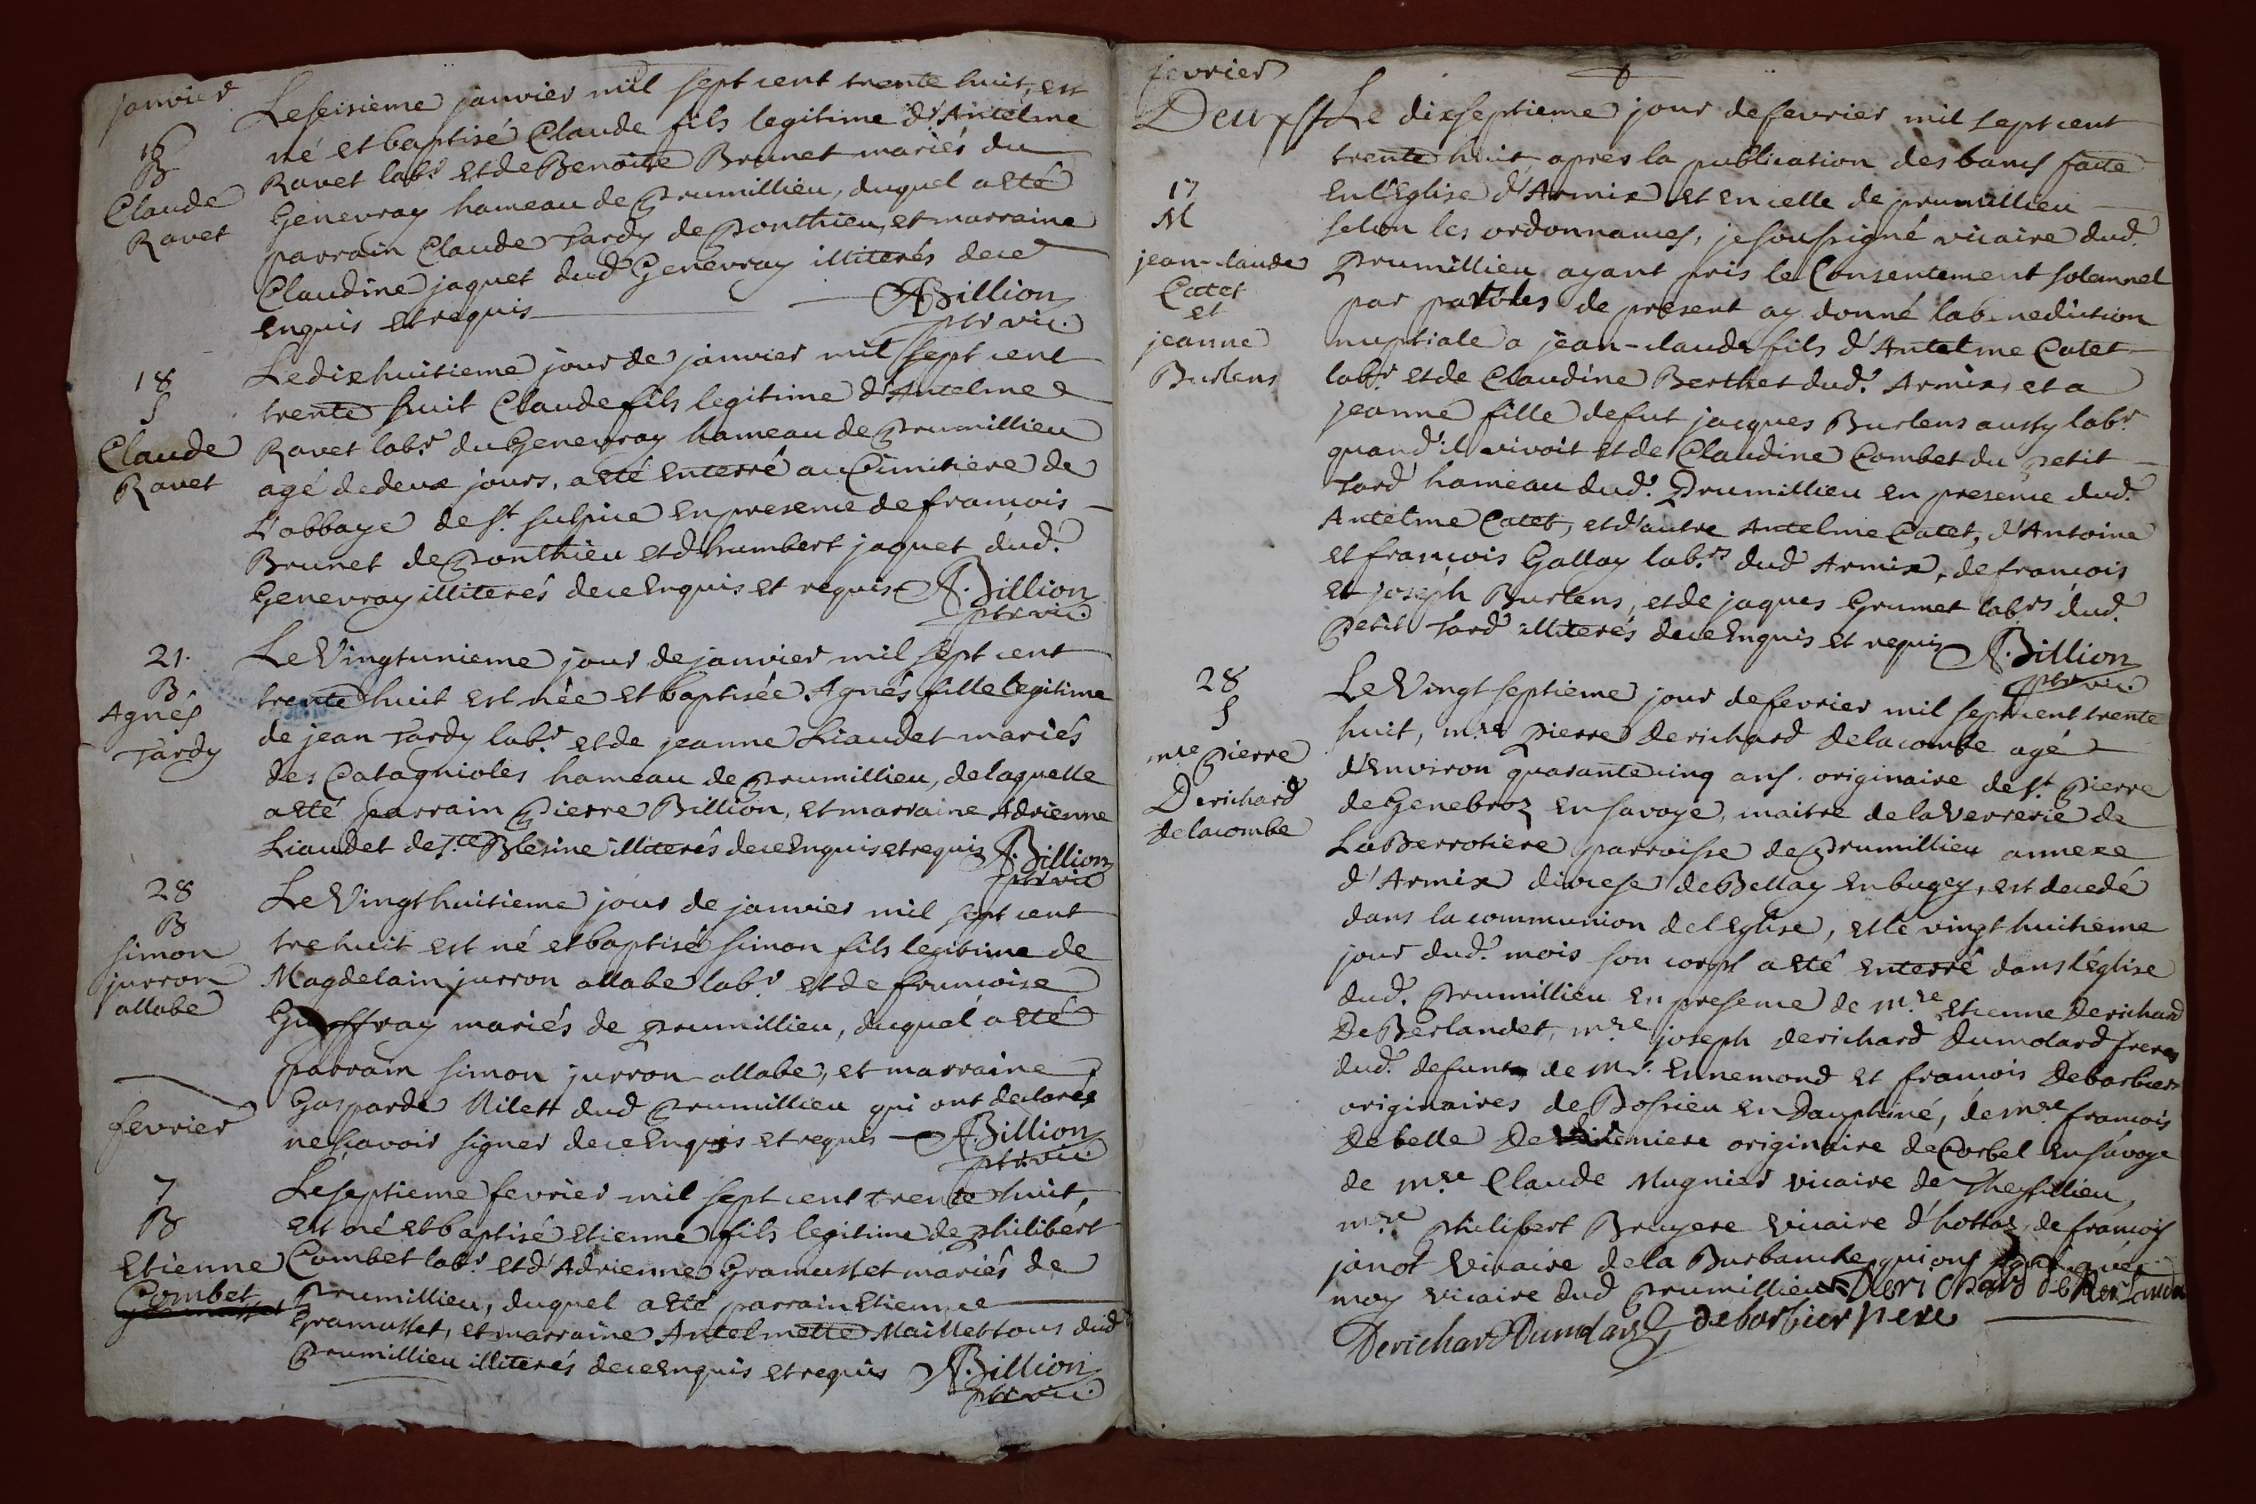 janvier
16
B
Claude
Ravet
Le seizieme janvier mil sept cent trente huit, est
né et baptisé Claude fils legitime d'Antelme
Ravet labr. et de Benoite Brunet mariés du
Genevray hameau de Prumillieu, duquel a eté
parrain Claude Tardy de Ponthieu, et marraine
Claudine jaquet dud. Genevray illiterés de ce
enquis et requis A. Billion
ptre vic.
18
S
Claude
Ravet
Le dixhuitieme jour de janvier mil sept cent
trente huit Claude fils legitime d'Antelme
Ravet labr. du Genevray hameau de Prumillieu
agé de deux jours, a eté enterré au Cimitiere de
L'abbaye de st. sulpice en presence de francois
Brunet de Ponthieu et d'humbert jaquet dud.
Genevray illiterés de ce enquis et requis A. Billion
ptre vic.
21.
B
Agnés
Tardy
Le Vingtunieme jour de janvier mil sept cent
trente huit est née et baptisée Agnés fille legitime
de jean Tardy labr. et de jeanne Liaudet mariés
des Catagnioles hameau de Prumillieu, de laquelle
a eté parrain Pierre Billion, et marraine Adrienne
Liaudet de ste. Blesine illiterés de ce enquis et requis A. Billion
ptre vic
28
B
simon
jurron
allabe
Le Vingthuitieme jour de janvier mil sept cent
tre huit est né et baptisé simon fils legitime de
Magdelain jurron allabe labr. et de francoise
Guiffray mariés de Prumillieu, duquel a eté
parrain simon jurron allabe, et marraine
Gasparde Milett dud Prumillieu qui ont declarés
ne scavoir signer de ce enquis et requis A. Billion
ptre vic.
fevrier
7
B
Etienne
Combet
Le septieme fevrier mil sept cent trente huit,
est né et baptisé Etienne fils legitime de Philibért
Combet labr. et d'Adrienne Gramusset mariés de
Prumillieu, duquel a eté parrain Etienne
Gramusset, et marraine Antelmette Maillet tous dud
Prumillieu illiterés de ce enquis et requis A. Billion
ptre vic.
fevrier
17
M
jean-claude
Catet
et
jeanne
Burlens
Le dixseptieme jour de fevrier mil sept cent
trente huit apres la publication des bancs faite
en l'Eglise d'Armix et en celle de prumillieu
selon les ordonnances, je soussigné vicaire dud.
Prumillieu ayant pris le Consentement solannel
par paroles de present ay donné la benediction
nuptiale a jean-claude fils d'Antelme Catet
labr. et de Claudine Berthet dud. Armix, et a
jeanne fille de fut jacques Burlens aussy labr.
quand il vivoit et de Claudine Combet du Petit
Tard hameau dud. Prumillieu en presence dud.
Antelme Catet, et d'autre Antelme Catet, d'Antoine
et francois Gallay labrs. dud Armix, de francois
et joseph Burlens, et de jaques Grumet labrs dud.
Petit Tard illiterés de ce enquis et requis A. Billion
ptre vic.
28
S
mre Pierre
Derichard
delacombe
Le Vingt septieme jour de fevrier mil sept cent trente
huit, mre Pierre derichard delacombe agé
d'Environ quarante cinq ans. originaire de st. Pierre
de Genebroz en savoye, maitre de la verrerie de
La Berrotiere parroisse de Prumillieu annexe
d'Armix diocese de Bellay en bugey, est decedé
dans la communion de l'Eglise, et le vingt huitieme
jour dud. mois son corps a eté enterré dans l'église
dud. Prumillieu en presence de mre Etienne derichard
De Berlandet, mre joseph derichard Dumolard freres
dud. defunt de Mr. Ennemond et francois debarbier
originaires de Bossieu en Dauphiné, de mre francois
De belle originaire de Corbel en savoye
de mre Claude Mugnier vicaire de Thesillieu,
mre Philibert Bruyere vicaire d'hottaz, de francois
janot vicaire de la Burbanche qui ont signé avec
moy vicaire dud Prumillieu Derichard de Berlandet
Derichard Dumolard debarbier pere